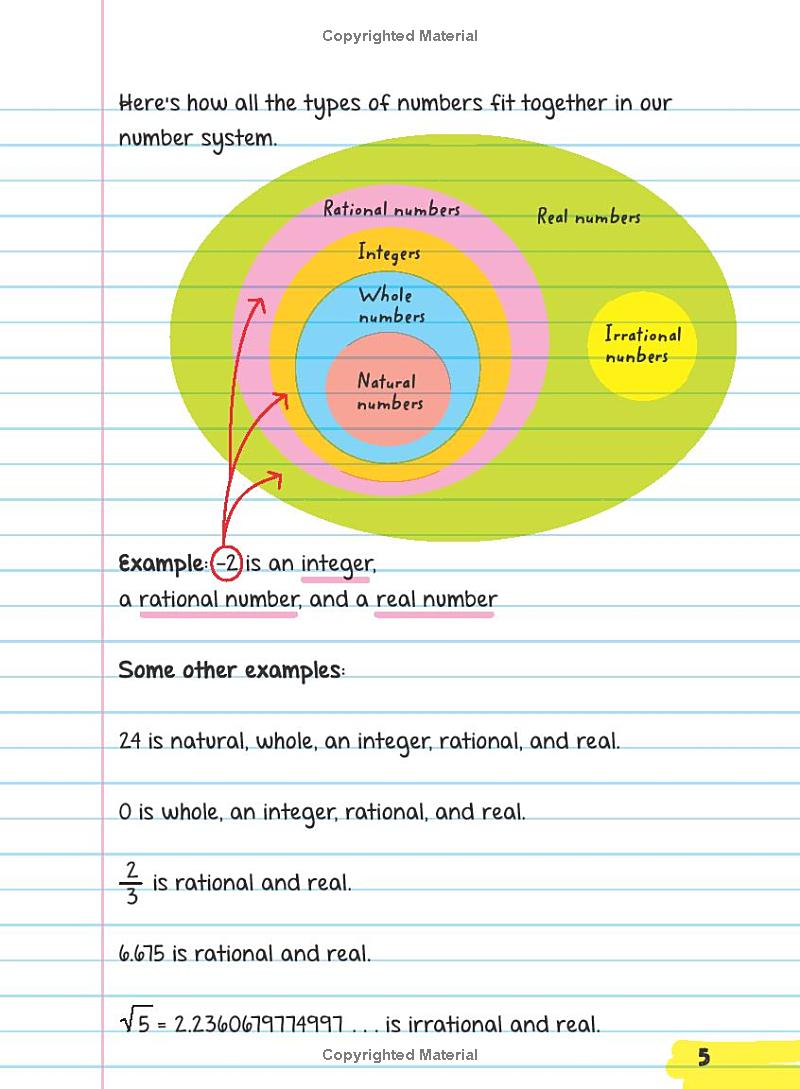 Copyrighted Material
Here's how all the types of numbers fit together in our
number system.
Rational numbers
Real numbers
Integers
Whole
numbers
Irrational
nunbers
Natural
numbers
Example: -2 is an integer,
a rational number, and a real number
Some other examples:
24 is natural, whole, an integer, rational, and real.
0 is whole, an integer, rational, and real.
2/3 is rational and real.
6.675 is rational and real.
√5 = 2.2360679774997 . . . is irrational and real.
Copyrighted Material
5